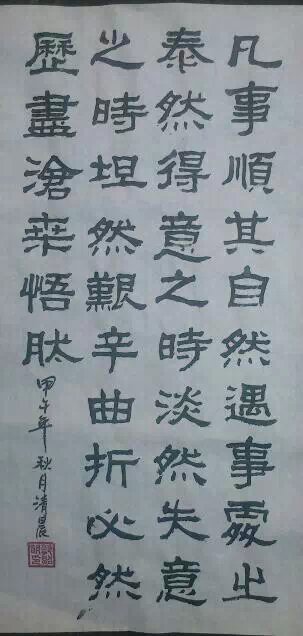 凡事順其自然遇事處之
泰然得意之時淡然失意
之時坦然艱辛曲折必然
歷盡滄桒悟然
甲午年秋月清晨